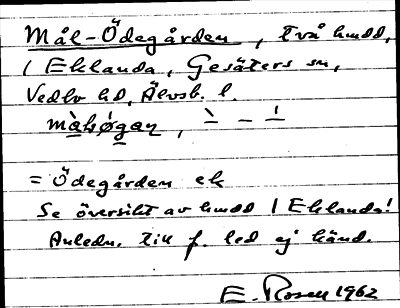 Mål-Ödegården, två hmdd,
i Eklanda, Gesäters sn,
Vedbo hd, Älvsb. l.
= Ödegården ek
Se översikt av hmdd i Eklanda!
Anledn. till f. led ej känd.
E. Rosen 1962